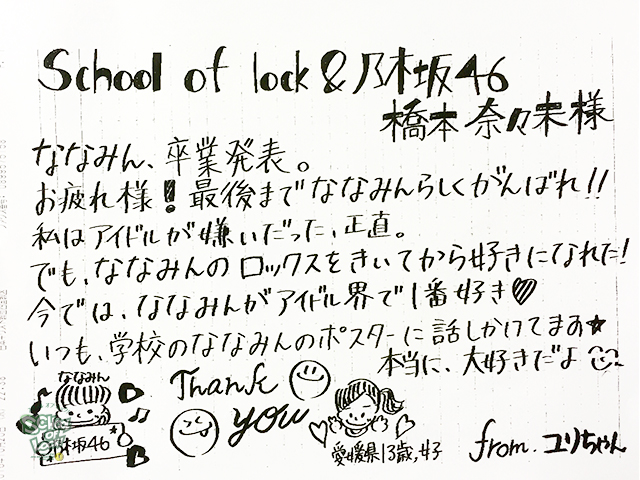 School of lock & 乃木坂46
橋本奈々未様
ななみん、卒業発表。
お疲れ様! 最後までななみんらしくがんばれ!!
私はアイドルが嫌いだった、正直。
でも、ななみんのロックスをきいてから好きになれた!
今では、ななみんがアイドル界で1番好き♥
いつも、学校のななみんのポスターに話しかけてます★
本当に、大好きだよ
ななみん
乃木坂46
Thank
you
愛媛県13歳,女子
from. ユリちゃん